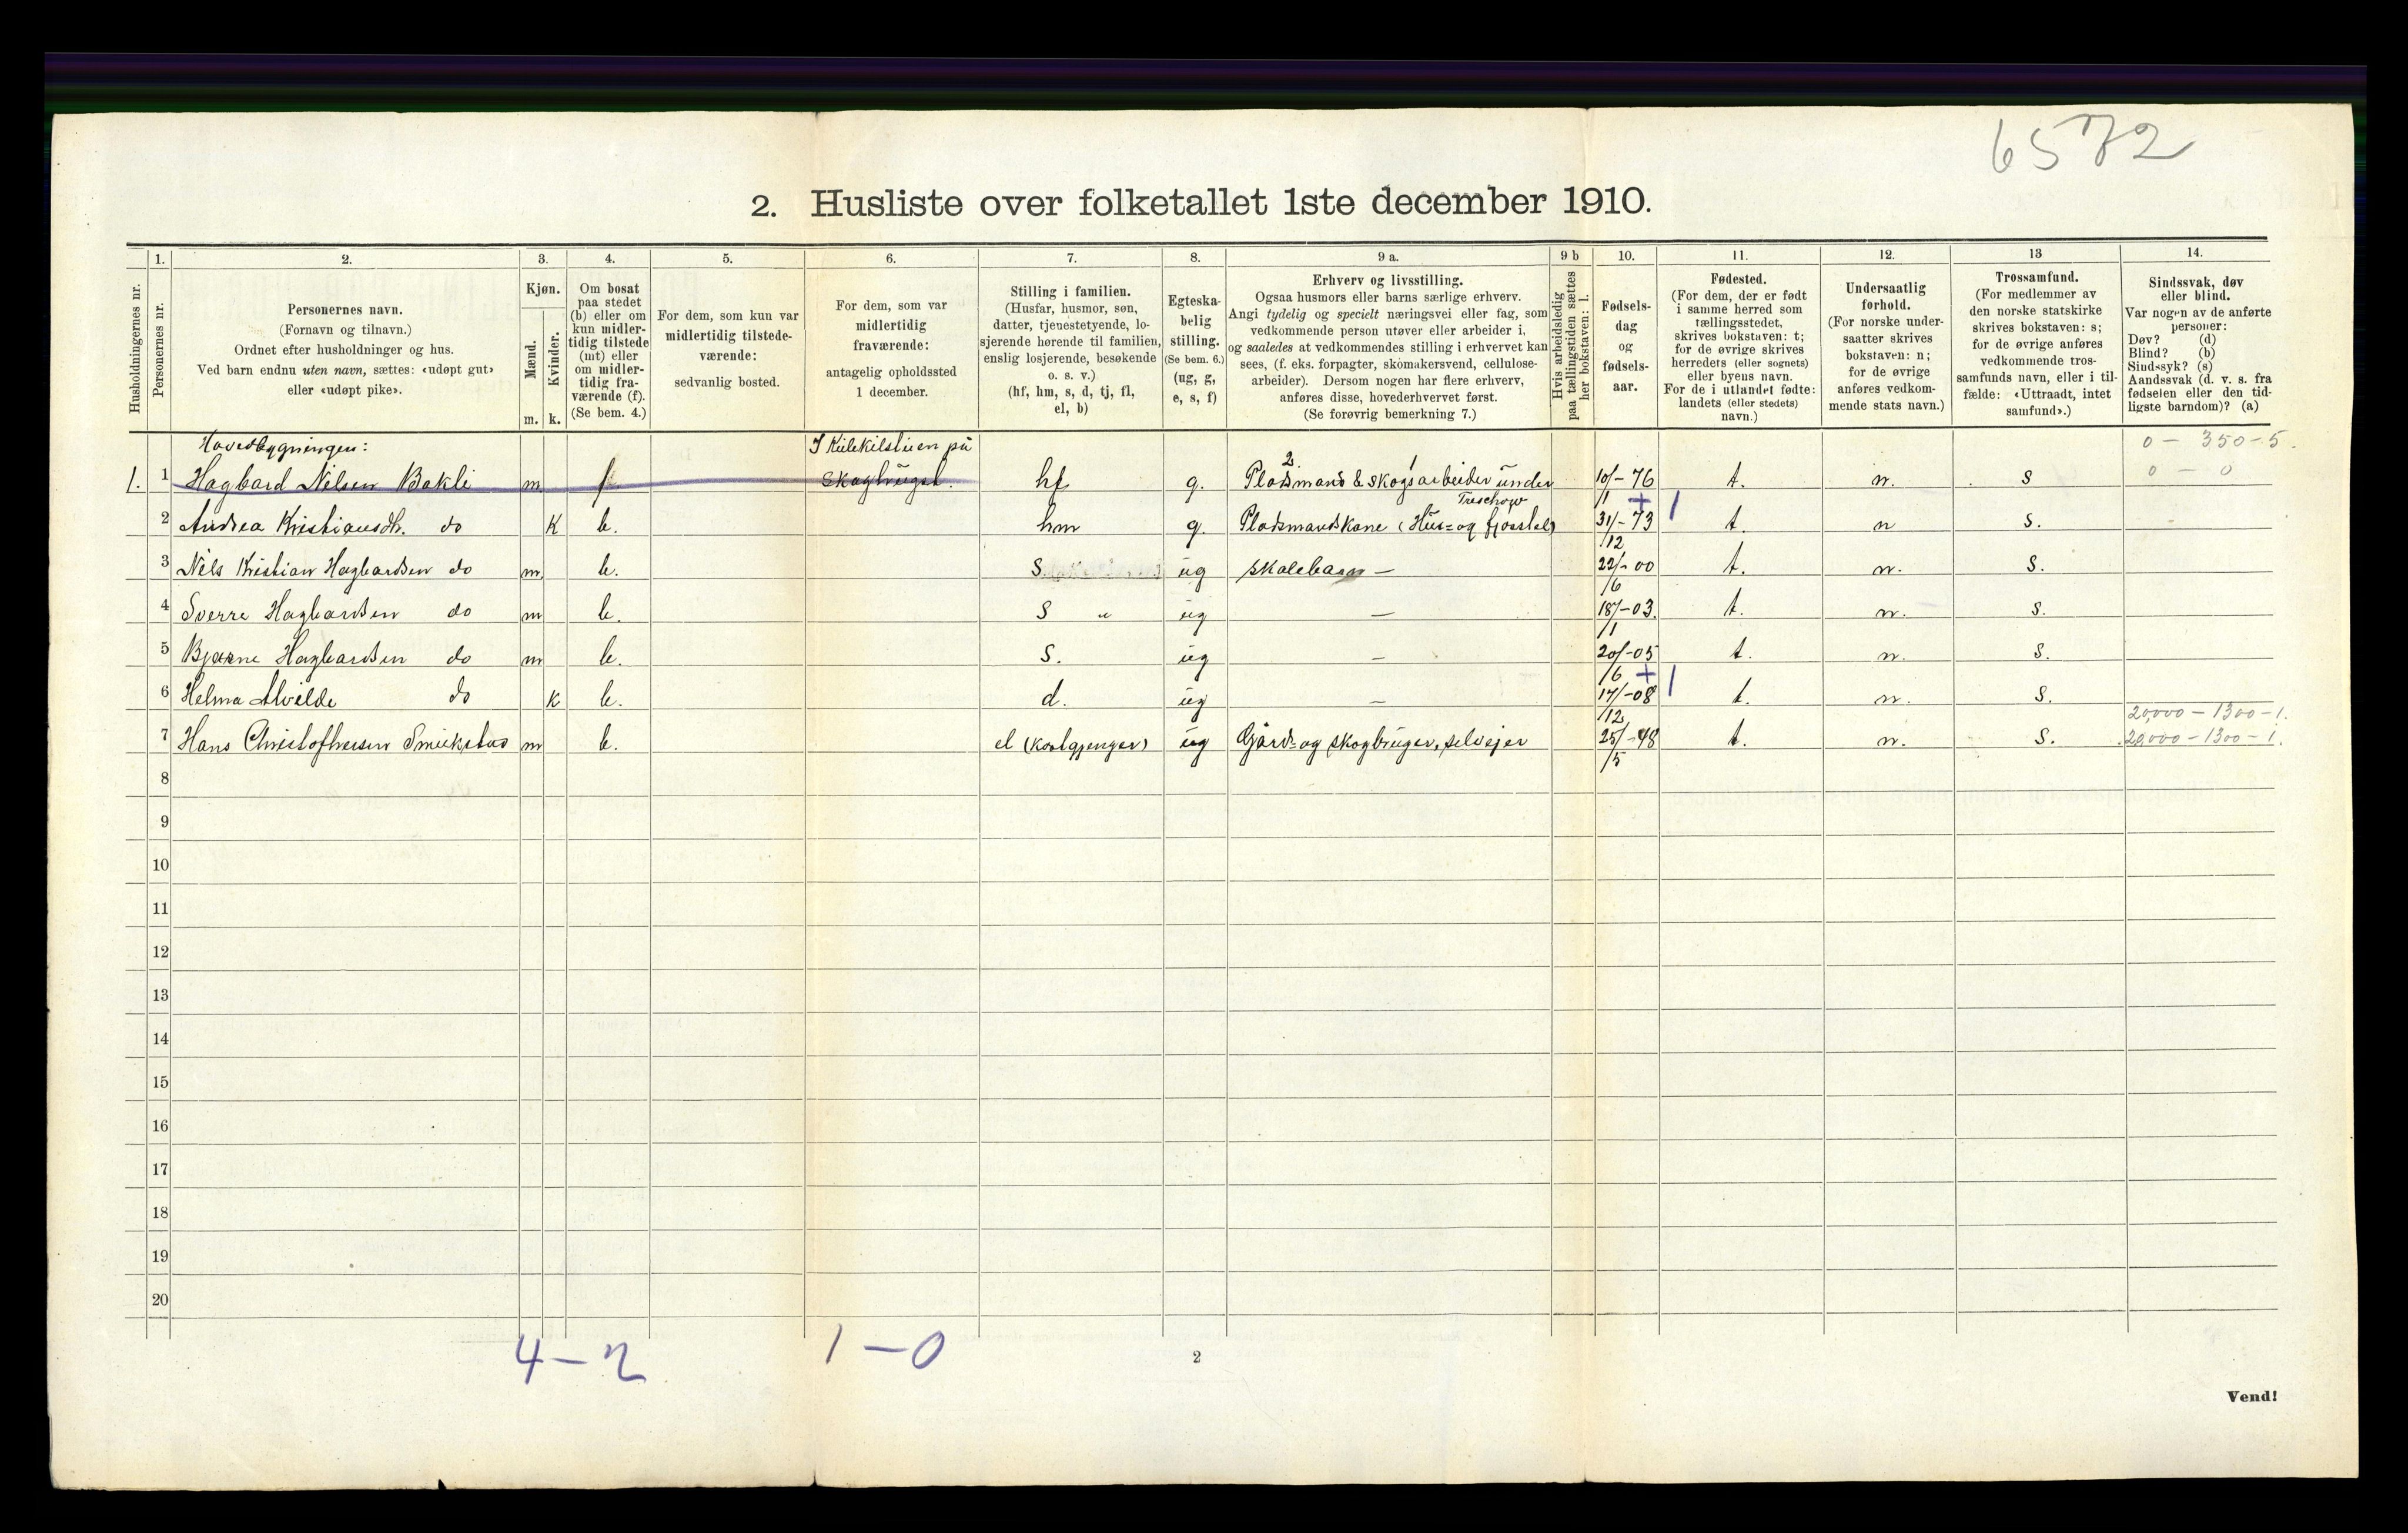 6572
2. Husliste over folketallet 1ste december 1910.
Husholdningernes nr.
1.
Personernes nr.
2.
Personernes navn.
(Fornavn og tilnavn.)
Ordnet efter husholdninger og hus.
Ved barn endnu uten navn, sættes: «udøpt gut»
eller «udøpt pike».
3.
Kjøn.
Mænd.
Kvinder.
m. k.
4.
Om bosat
paa stedet
(b) eller om
kun midler-
tidig tilstede
(mt) eller
om midler-
tidig fra-
værende (f).
(Se bem. 4.)
5.
For dem, som kun var
midlertidig tilstede-
værende:
sedvanlig bosted.
6.
For dem, som var
midlertidig
fraværende:
antagelig opholdssted
1 december.
7.
Stilling i familien.
(Husfar, husmor, søn,
datter, tjenestetyende, lo-
sjerende hørende til familien,
enslig losjerende, besøkende
o. s. v.)
(hf, hm, s, d, tj, fl,
el, b)
8.
Egteska-
belig
stilling.
(Se bem. 6.)
(ug, g,
e, s, f)
9 a.
Erhverv og livsstilling.
Ogsaa husmors eller barns særlige erhverv.
Angi tydelig og specielt næringsvei eller fag, som
vedkommende person utøver eller arbeider i,
og saaledes at vedkommendes stilling i erhvervet kan
sees, (f. eks. forpagter, skomakersvend, cellulose-
arbeider). Dersom nogen har flere erhverv,
anføres disse, hovederhvervet først.
(Se forøvrig bemerkning 7.)
9 b
Hvis arbeidsledig
paa tællingstiden sættes
her bokstaven: l.
10.
Fødsels-
dag
og
fødsels-
aar.
11.
Fødested.
(For dem, der er født
i samme herred som
tællingsstedet,
skrives bokstaven: t;
for de øvrige skrives
herredets (eller sognets)
eller byens navn.
For de i utlandet fødte:
landets (eller stedets)
navn.)
12.
Undersaatlig
forhold.
(For norske under-
saatter skrives
bokstaven: n;
for de øvrige
anføres vedkom-
mende stats navn.)
13
Trossamfund.
(For medlemmer av
den norske statskirke
skrives bokstaven: s;
for de øvrige anføres
vedkommende tros-
samfunds navn, eller i til-
fælde: «Uttraadt, intet
samfund».)
14.
Sindssvak, døv
eller blind.
Var nogen av de anførte
personer:
Døv? (d)
Blind? (b)
Sindssyk? (s)
Aandssvak (d. v. s. fra
fødselen eller den tid-
ligste barndom)? (a)
Hovedbygningen: I Kulekilstuen på 0 - 350 - 5.
1. 1 Hagbard Nilsen Bakli m f Skogbruget. hf g. Pladsmand & skogsarbeider under 10/1-76 t. n. s 0 - 0
2 1
Treschow
2 Andrea Kristiansdtr. do K b. hm g. Pladsmandskone (Hus= og fjosstel) 31/12-73 t n s.
3 Nils Kristian Hagbardsen do m. b. s ug skolebarn — 22/6-00 t. n. s.
4 Sverre Hagbardsen do m b. s " ug — 18/1-03. t. n. s.
5 Bjarne Hagbardsen do m b. s. ug — 20/6-05 t. n. s.
6 Helma Alvilde do K b. d. ug — 17/12-08 t. n. s.
20,000 - 1300 - 1.
7 Hans Christofhersen Smukstad m b. el (kostgjenger) ug Gård= og skogbruger, selveier 25/5-48 t. n. s. 20,000 - 1300 - 1.
8
9
10
11
12
13
14
15
16
17
18
19
20
4 - 2 1 - 0
2
Vend!